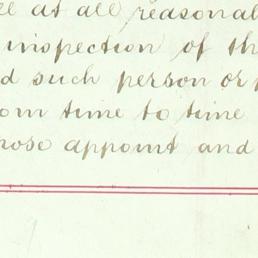 at all reasonal
inspection of th
d such person or
om time to time
hose appoint and